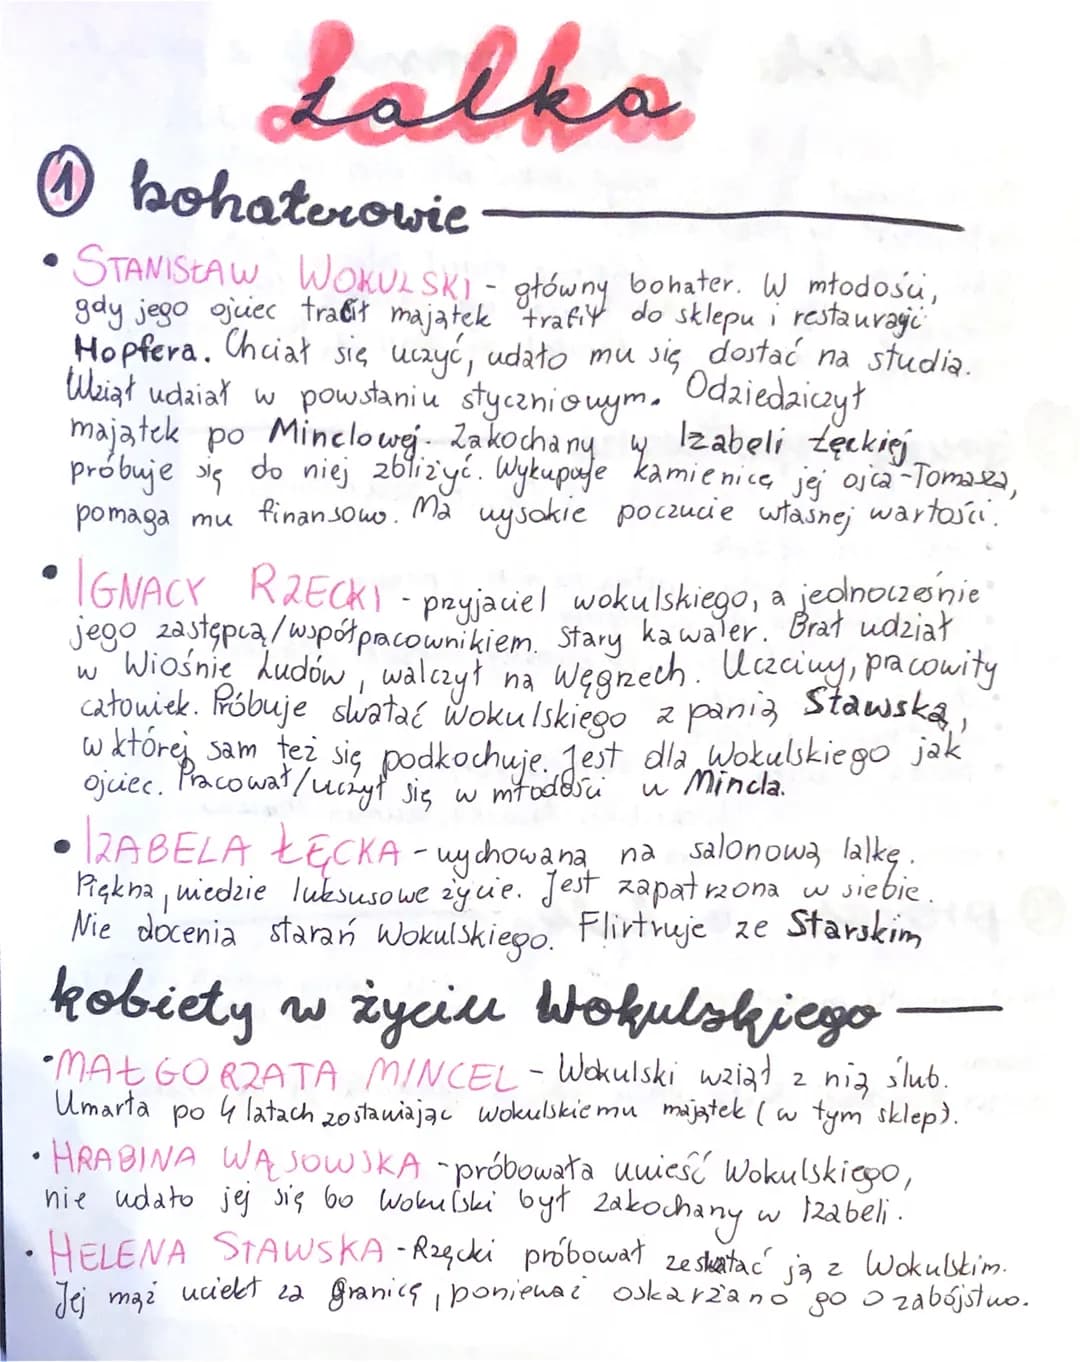 Lalka
1 bohaterowie
• STANISŁAW WOKULSKI - główny bohater. W młodości,
gdy jego ojciec tracił majątek trafił do sklepu i restauracji
Hopfera. Chciał się uczyć, udało mu się dostać na studia.
Wziął udział w powstaniu styczniowym. Odziedziczył
majątek po Minclowej. Zakochany w Izabeli Łęckiej
próbuje się do niej zbliżyć. Wykupuje kamienicę jej ojca - Tomasza,
pomaga mu finansowo. Ma wysokie poczucie własnej wartości.
• IGNACY RZECKI - przyjaciel wokulskiego, a jednocześnie
jego zastępcą/współpracownikiem. Stary kawaler. Brał udział
w Wiośnie Ludów, walczył na Węgrzech. Uczciwy, pracowity
człowiek. Próbuje swatać Wokulskiego z panią Stawską,
w której sam też się podkochuje. Jest dla Wokulskiego jak
ojciec. Pracował/uczył się w młodości u Mincla.
• IZABELA ŁĘCKA - wychowana na salonową lalkę.
Piękna, wiedzie luksusowe życie. Jest zapatrzona w siebie.
Nie docenia starań Wokulskiego. Flirtruje ze Starskim
kobiety w życiu Wokulskiego
• MAŁGORZATA MINCEL - Wokulski wziął z nią ślub.
Umarła po 4 latach zostawiając wokulskiemu majątek (w tym sklep).
• HRABINA WĄSOWSKA - próbowała uwieść Wokulskiego,
nie udało jej się bo Wokulski był zakochany w Izabeli.
• HELENA STAWSKA - Rzęcki próbował zeskatać ją z Wokulskim.
Jej mąż uciekł za granicę, ponieważ oskarżano go o zabójstwo.